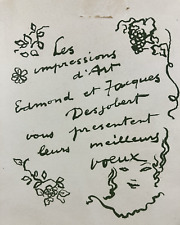 Les
impressions
d'Art
Edmond et Jacques
Desjobert
vous présentent
leurs meilleurs
voeux